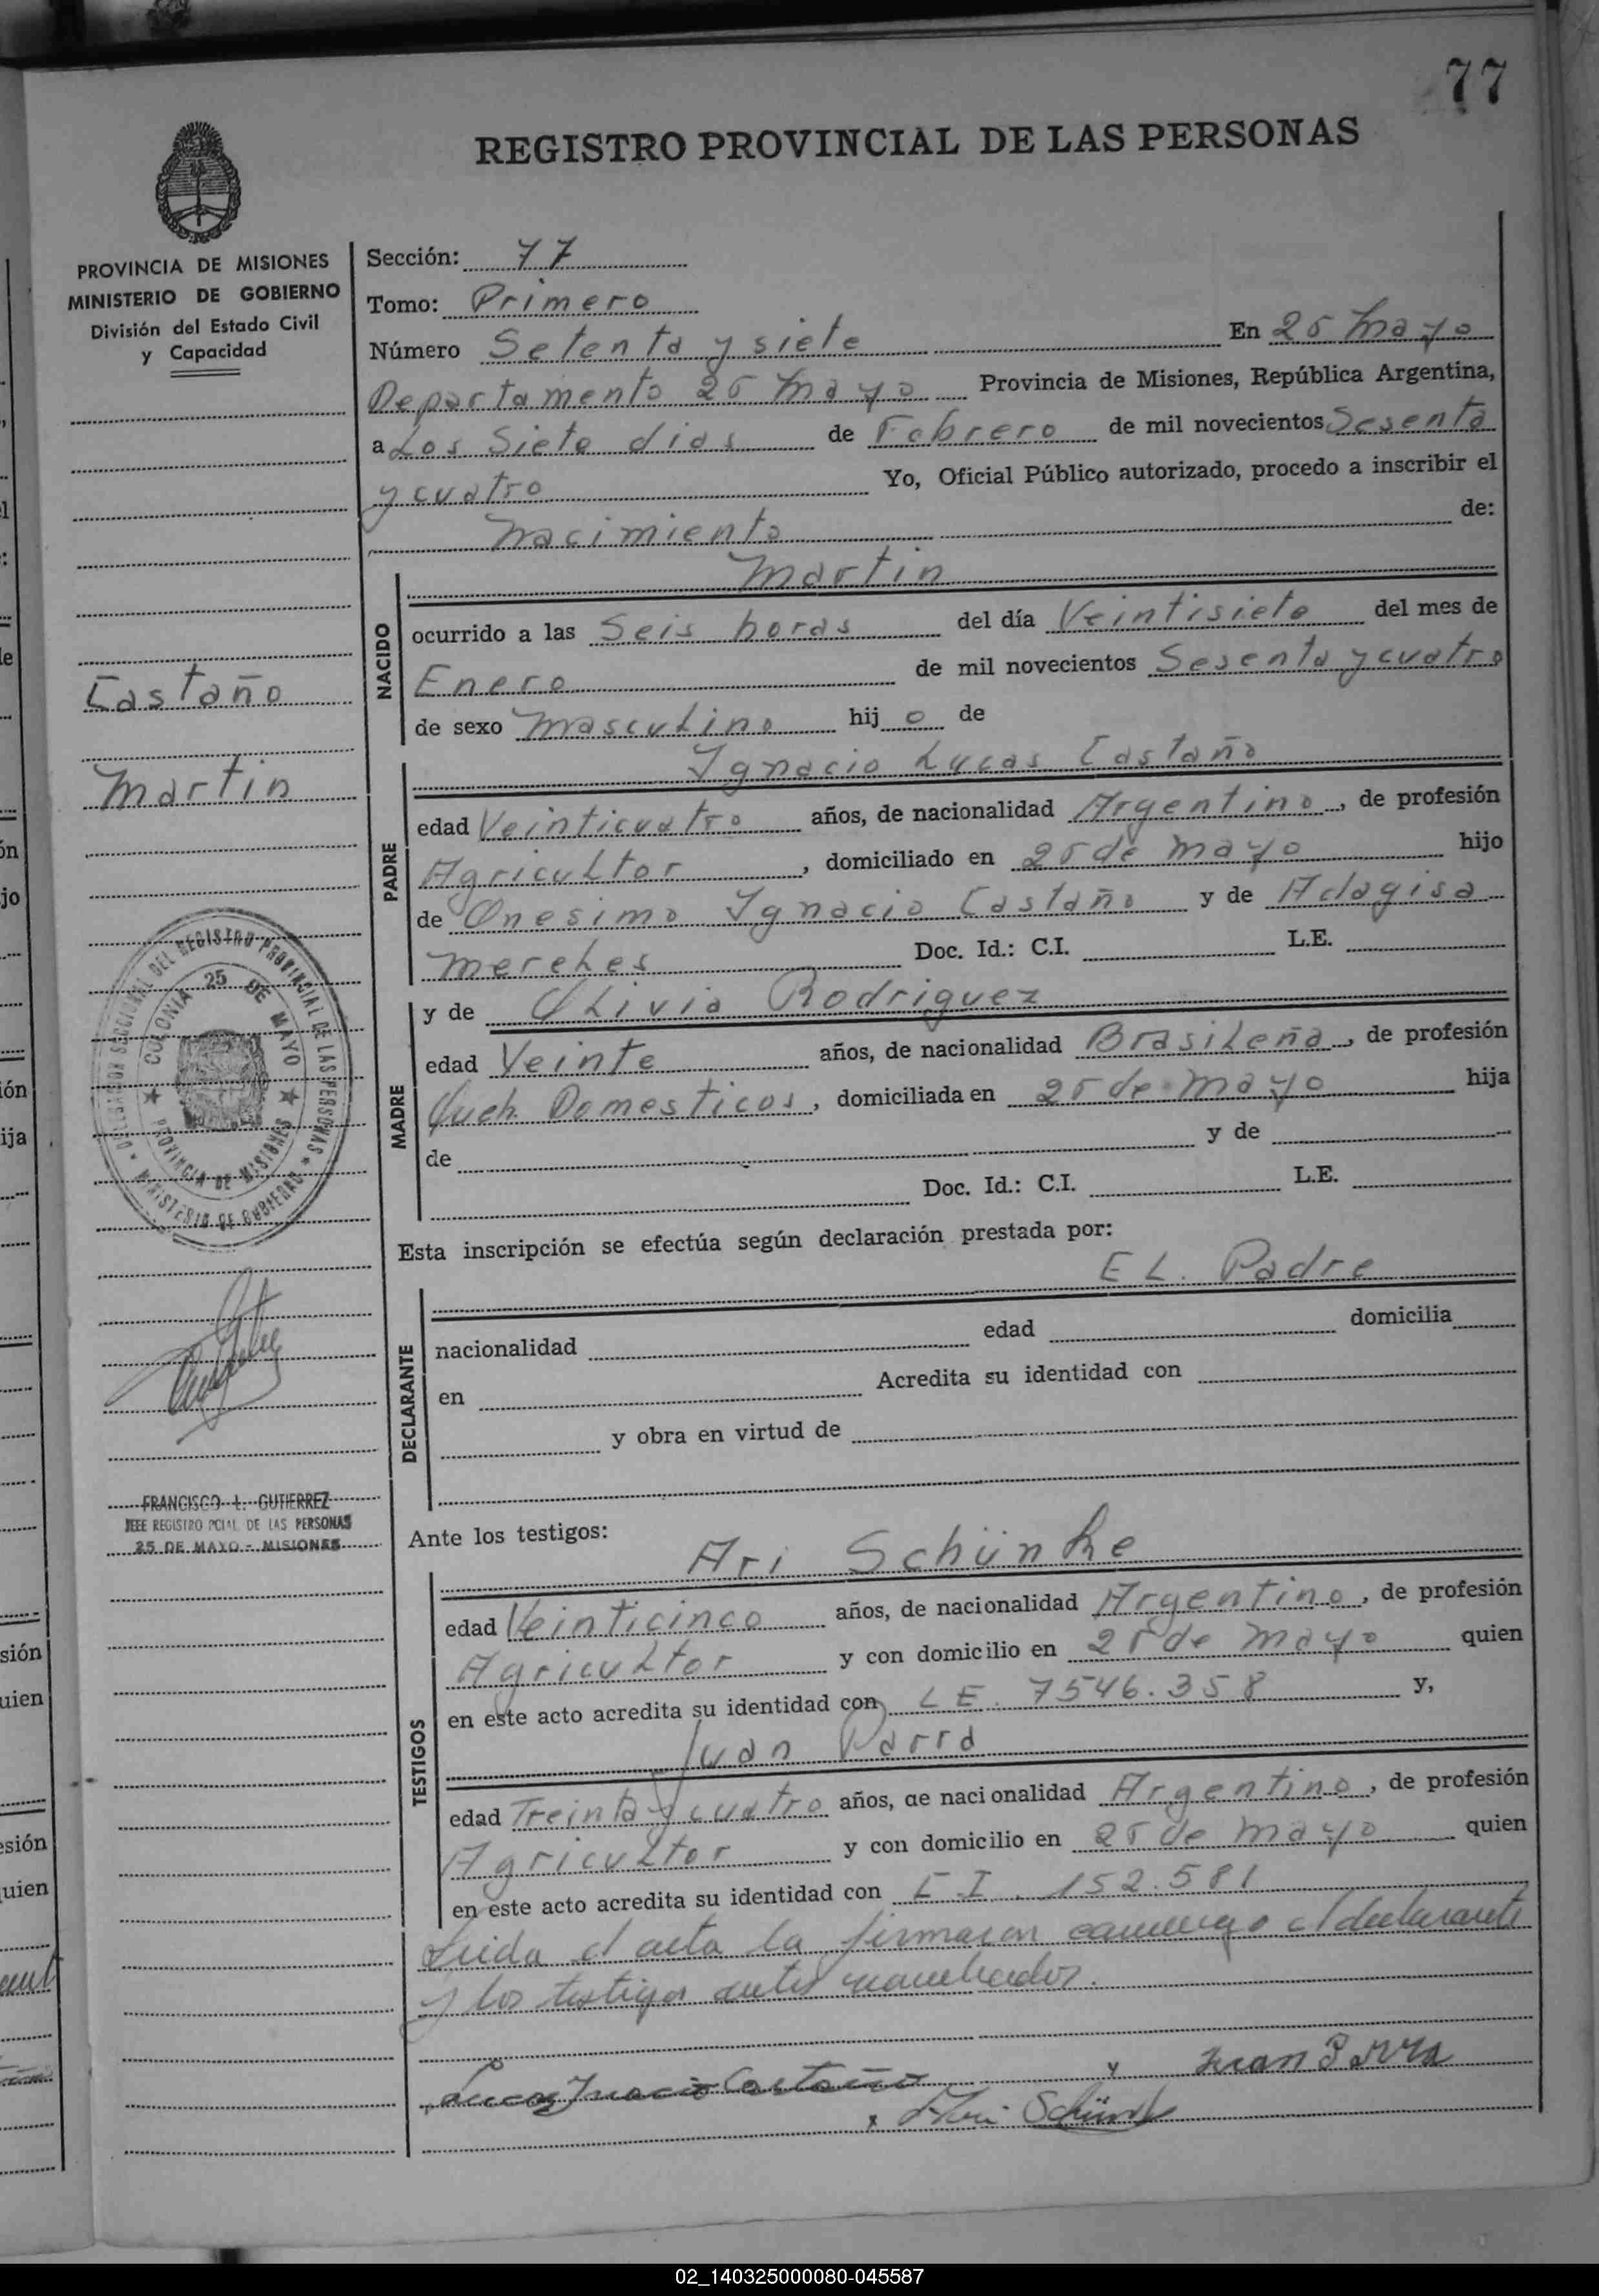 77
REGISTRO PROVINCIAL DE LAS PERSONAS
PROVINCIA DE MISIONES
MINISTERIO DE GOBIERNO
División del Estado Civil
y Capacidad
Castaño
Martin
DELEGACION SECCIONAL DEL REGISTRO PROVINCIAL DE LAS PERSONAS
MINISTERIO DE GOBIERNO
COLONIA 25 DE MAYO
PROVINCIA DE MISIONES
FRANCISCO L. GUTIERREZ
JEFE REGISTRO PCIAL DE LAS PERSONAS
25 DE MAYO - MISIONES
Sección: 77
Tomo: Primero
Número Setenta y siete En 25 Mayo
Departamento 25 Mayo Provincia de Misiones, República Argentina,
a Los Siete dias de Febrero de mil novecientos Sesenta
y cuatro Yo, Oficial Público autorizado, procedo a inscribir el
Nacimiento de:
NACIDO
Martin
ocurrido a las Seis horas del día Veintisiete del mes de
Enero de mil novecientos Sesenta y cuatro
de sexo Masculino hijo de
PADRE
Ygnacio Lucas Castaño
edad Veinticuatro años, de nacionalidad Argentino, de profesión
Agricultor, domiciliado en 25 de Mayo hijo
de Onesimo Ygnacio Castaño y de Adagisa
Mereles Doc. Id.: C.I. L.E.
MADRE
y de Olivia Rodriguez
edad Veinte años, de nacionalidad Brasileña, de profesión
Queh. Domesticos, domiciliada en 25 de Mayo hija
de y de
Doc. Id.: C.I. L.E.
Esta inscripción se efectúa según declaración prestada por:
DECLARANTE
EL. Padre
nacionalidad edad domicilia
en Acredita su identidad con
y obra en virtud de
Ante los testigos:
TESTIGOS
Ari Schünke
edad Veinticinco años, de nacionalidad Argentino, de profesión
Agricultor y con domicilio en 25 de Mayo quien
en este acto acredita su identidad con L E. 7546.358 y,
Juan Parra
edad Treinta y cuatro años, de nacionalidad Argentino, de profesión
Agricultor y con domicilio en 25 de Mayo quien
en este acto acredita su identidad con C I. 152.581
Leida el acta la firmaron conmigo el declarante
y los testigos antes nombrados.
Lucas Ygnacio Castaño Juan Parra
x Ari Schünk
02_140325000080-045587